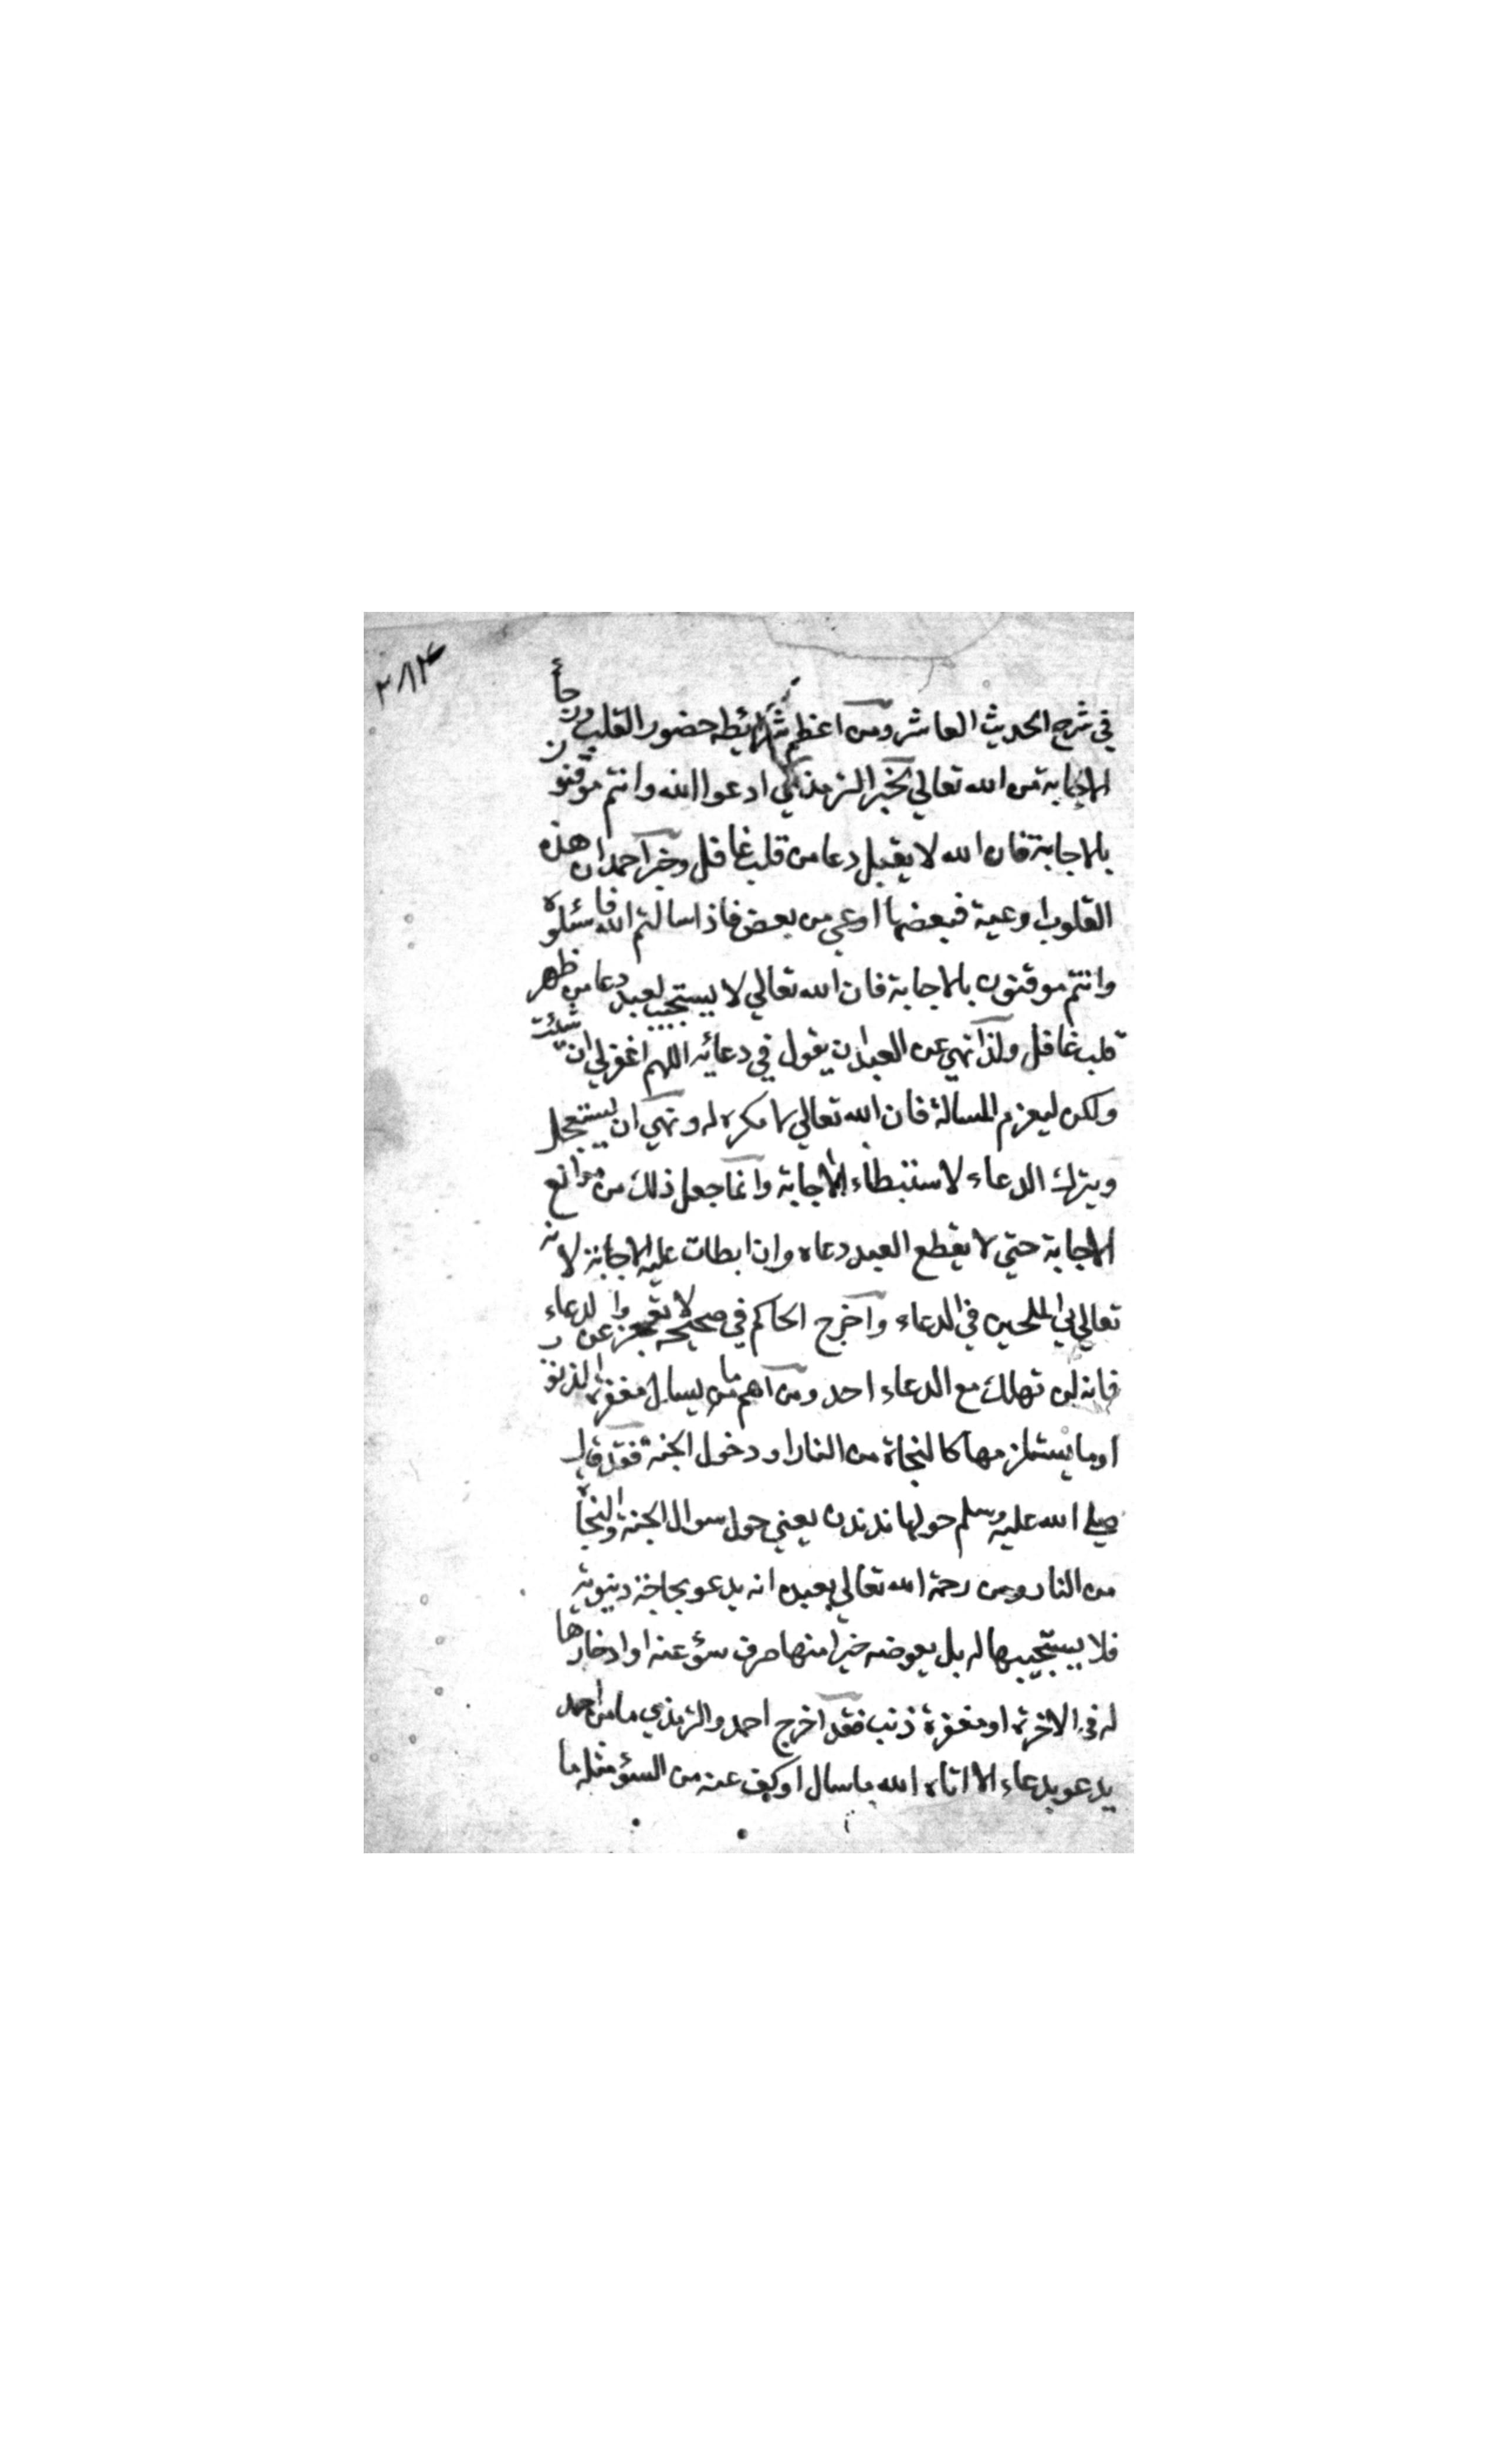 ٢٨٤
في شرح الحديث العاشر ومن اعظم شرائطه حضور القلب ورجأ
الاجابة من الله تعالي لخبر الترمذي ادعوا الله وانتم موقنون
بالاجابة فان الله لا يقبل دعا من قلب غافل وخبر احمد ان هذه
القلوب اوعية فبعضها اوعي من بعض فاذا سالتم الله فاسئلوه
وانتم موقنون بالاجابة فان الله تعالي لا يستجيب لعبد دعا من ظهر
قلب غافل ولذا نهي عن العبد ان يقول في دعائه اللهم اغفر لي ان شئت
ولكن ليعزم المسالة فان الله تعالي لا مكره له ونهي ان يستعجل
ويترك الدعاء لاستبطاء الاجابة وانما جعل ذلك من موانع
الاجابة حتي لا يقطع العبد دعاه وان ابطات عليه الاجابة لانه
تعالي يحب الملحين في الدعاء واخرج الحاكم في صحيحه لا تعجزوا عن الدعاء
فانه لن تهلك مع الدعاء احد ومن اهم ما يسال مغفرة الذنوب
او ما يستلزمها كالنجاة من النار او دخول الجنة فقد قال
صلي الله عليه وسلم حولها ندندن يعني حول سوال الجنة والنجاة
من النار ومن رحمة الله تعالي بعبده انه يدعو بحاجة دنيوية
فلا يستجيبها له بل يعوضه خيرا منها صرف سؤ عنه او ادخارها
له في الاخرة او مغفرة ذنب فقد اخرج احمد والترمذي ما من احد
يدعو بدعاء الا اتاه الله ما سال او كف عنه من السؤ مثله ما